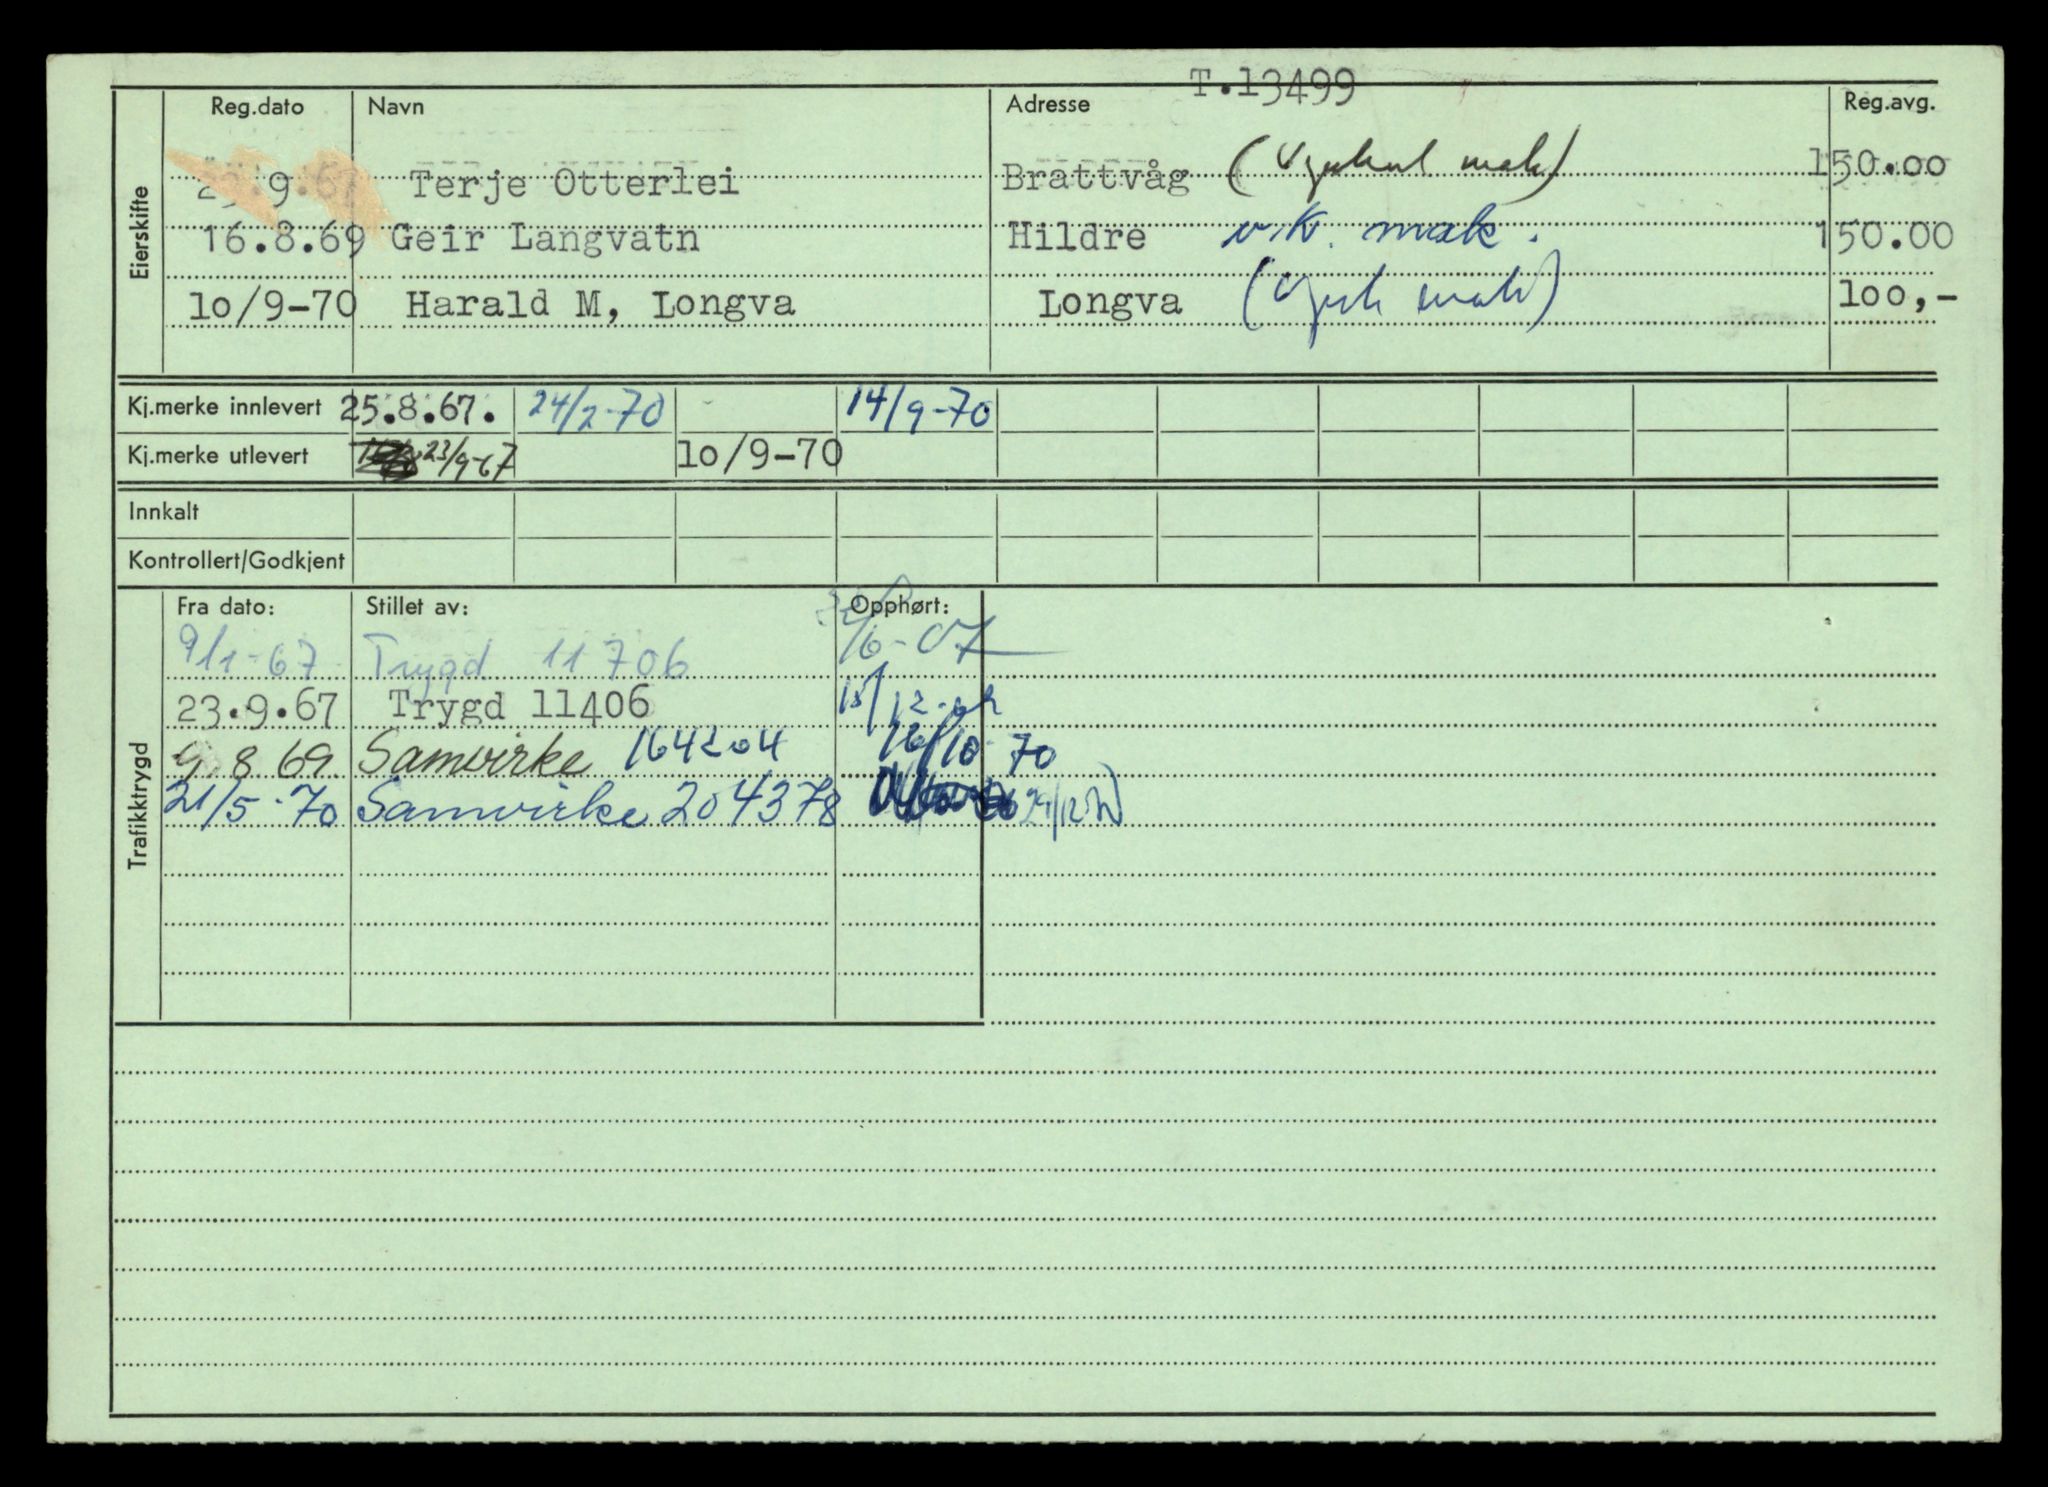 T.13499
Eierskifte
Reg.dato Navn Adresse Reg.avg.
23.9.67 Terje Otterlei Brattvåg 150.00
16.8.69 Geir Langvatn Hildre v.k. mak. 150.00
10/9-70 Harald M, Longva Longva 100,-
Kj.merke innlevert 25.8.67. 24/2-70 14/9-70
Kj.merke utlevert 23/9-67 10/9-70
Innkalt
Kontrollert/Godkjent
Trafikktrygd
Fra dato: Stillet av: Opphørt:
9/1-67 Trygd 11706
23.9.67 Trygd 11406
9.8 69 Samvirke 164204 16/10-70
21/5-70 Samvirke 204378